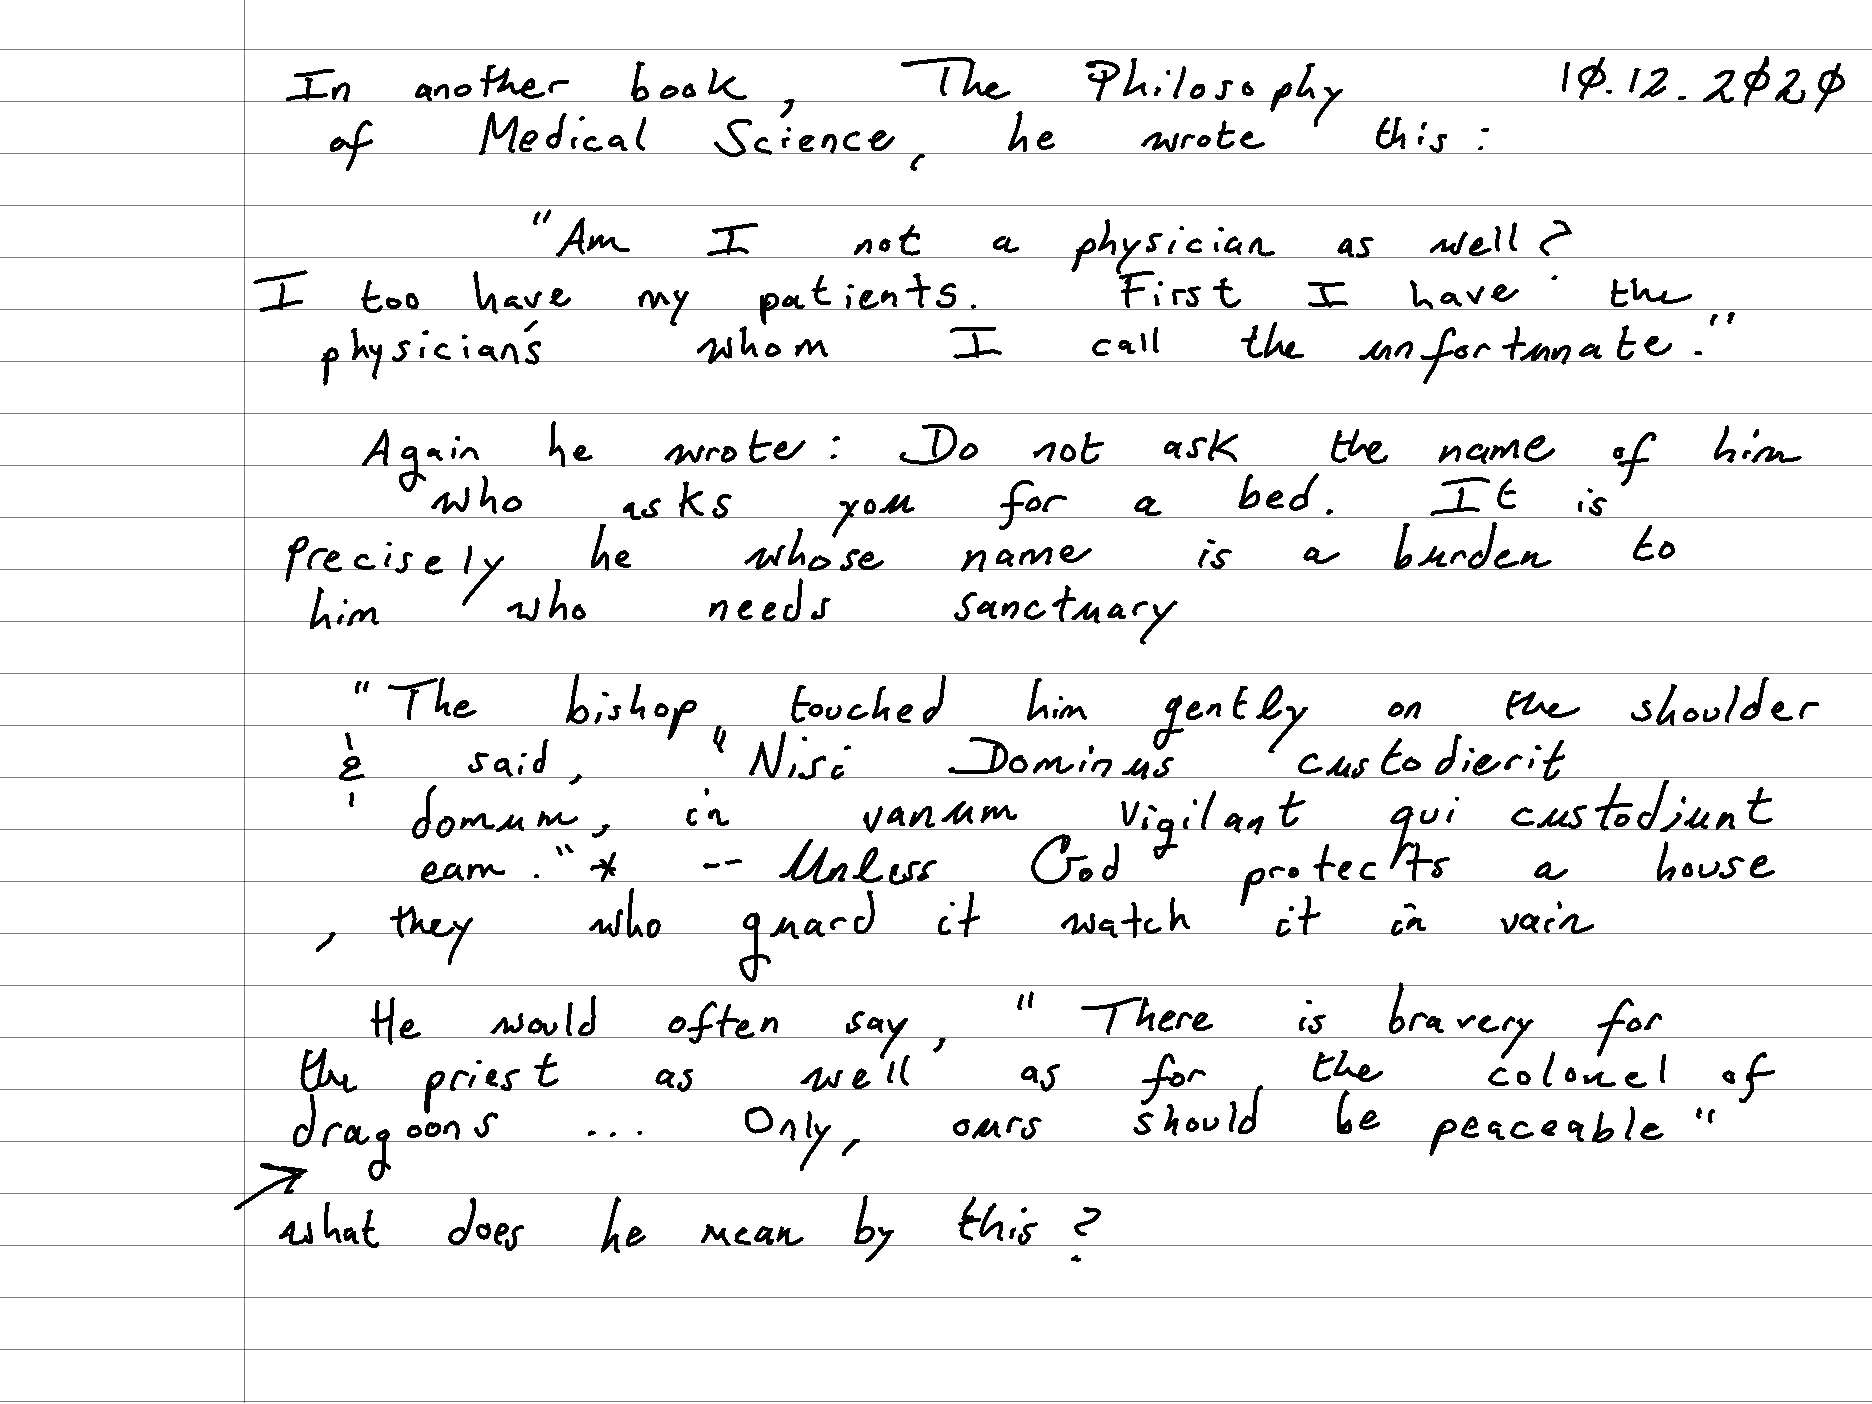 In another book, The Philosophy 10.12.2020
of Medical Science, he wrote this:
"Am I not a physician as well?
I too have my patients. First I have the
physician's whom I call the unfortunate."
Again he wrote: Do not ask the name of him
who asks you for a bed. It is
precisely he whose name is a burden to
him who needs sanctuary
"The bishop touched him gently on the shoulder
& said, "Nisi Dominus custodierit
domum, in vanum vigilant qui custodiunt
eam." * -- Unless God protects a house
, they who guard it watch it in vain
He would often say, "There is bravery for
the priest as well as for the colonel of
dragoons ... Only, ours should be peaceable"
what does he mean by this?